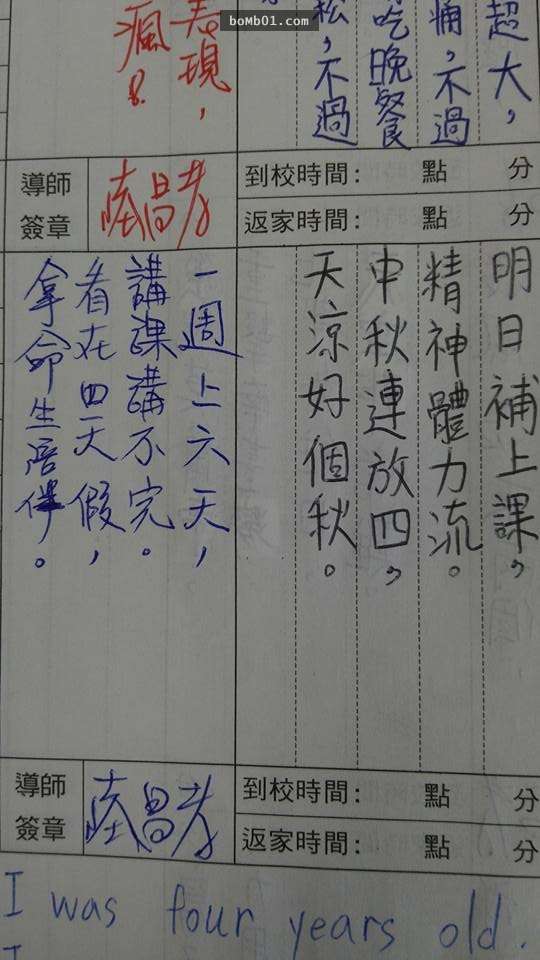 boMb01.com
超大，
痛，不過
吃晚餐
松，不過
表現，
瘋。
導師
簽章
到校時間：　點　分
返家時間：　點　分
明日補上課，
精神體力流。
中秋連放四，
天涼好個秋。
一週上六天，
講課講不完。
看在四天假，
拿命生陪伴。
導師
簽章
到校時間：　點　分
返家時間：　點　分
I was four years old.
I